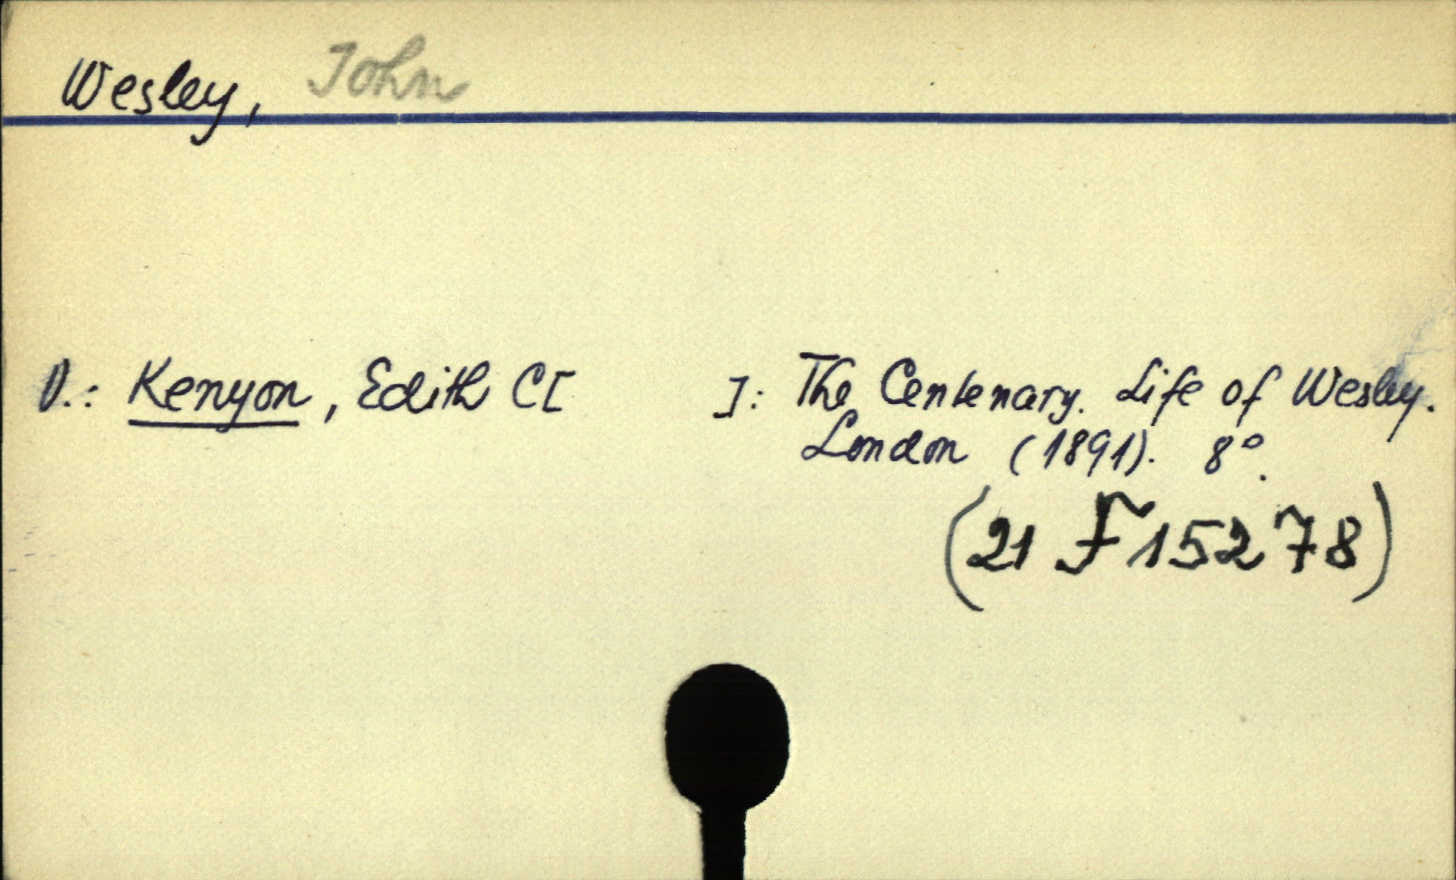 Wesley, John
V.: Kenyon, Edith C[ ]: The Centenary. Life of Wesley.
London (1891). 8°.
(21 F 15278)